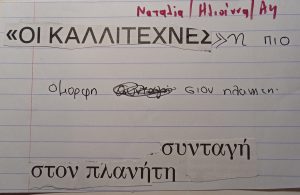 Ναταλία / Ηλιάννα /
«ΟΙ ΚΑΛΛΙΤΕΧΝΕΣ» η πιο
όμορφη στον πλανήτη.
συνταγή
στον πλανήτη